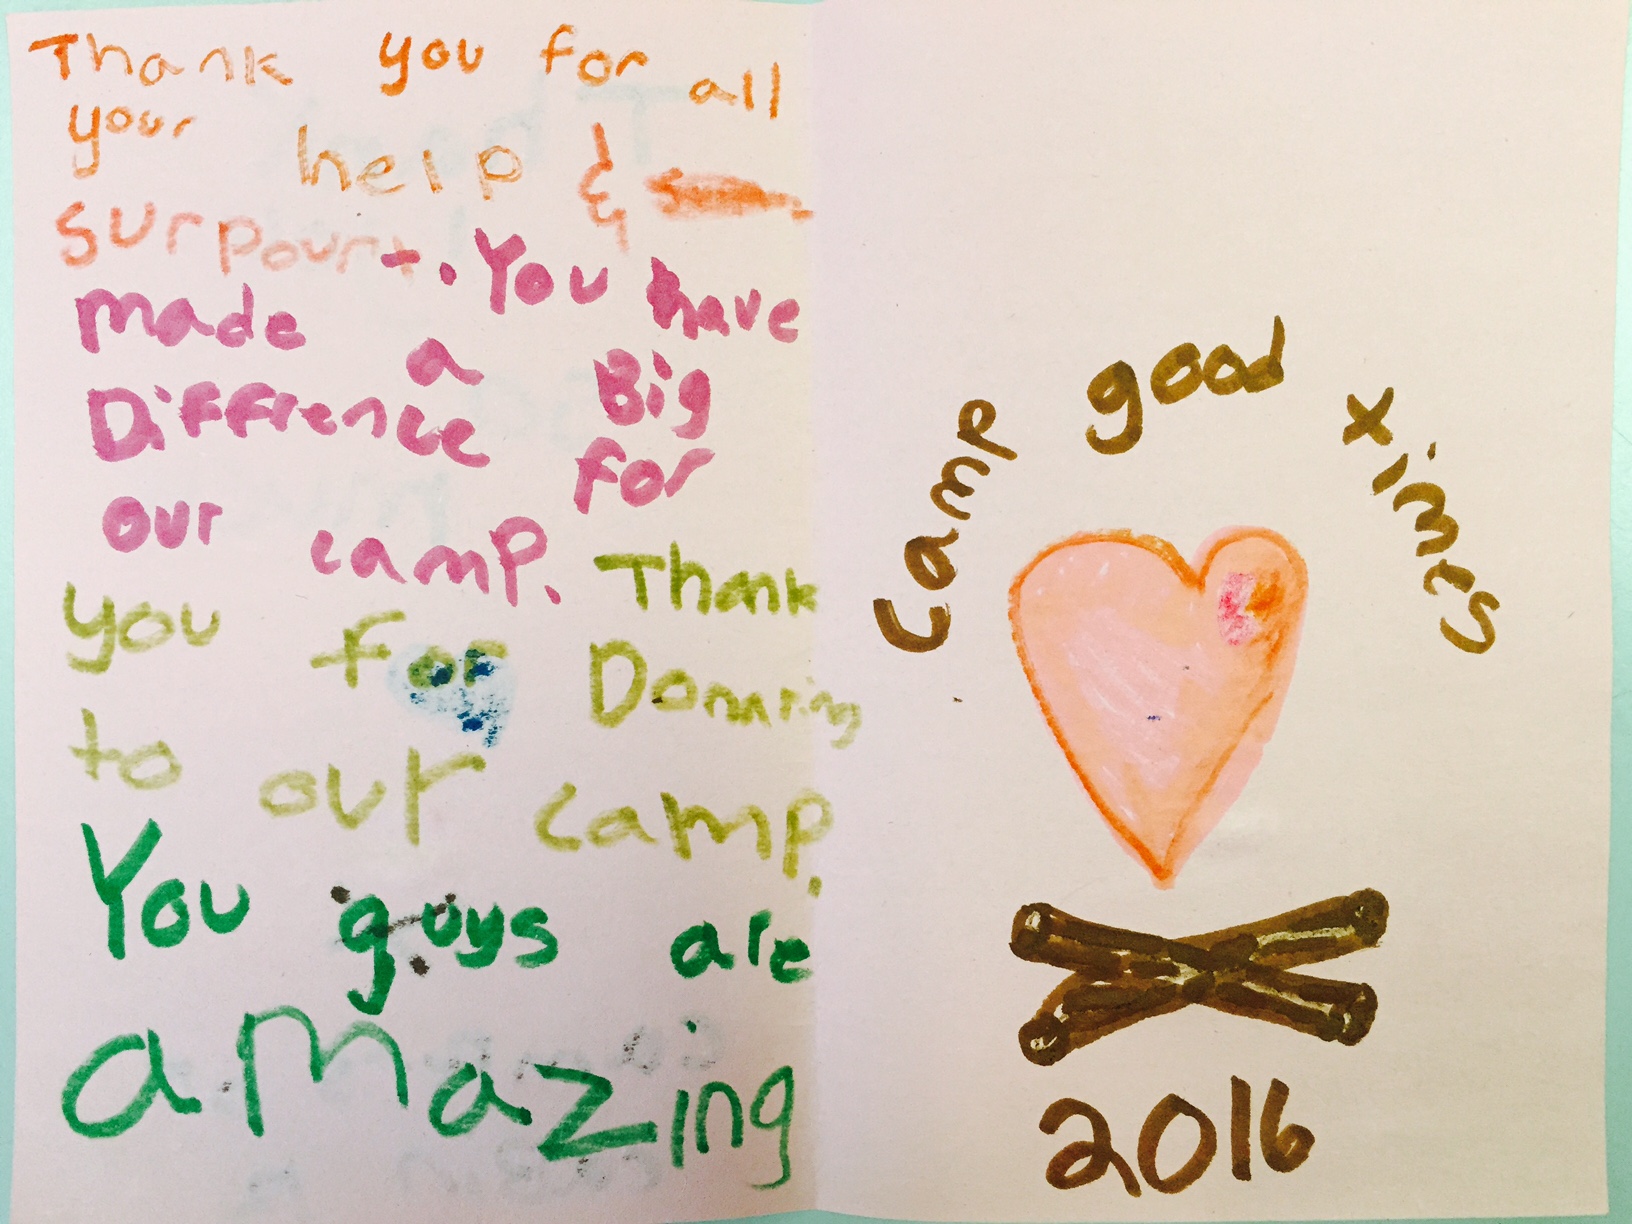 Thank you for all
your help &
surpourt. You have
made a Big
Diffrence for
our camp. Thank
you for Donnating
to our camp.
You guys are
amazing
Camp good ximes
2016